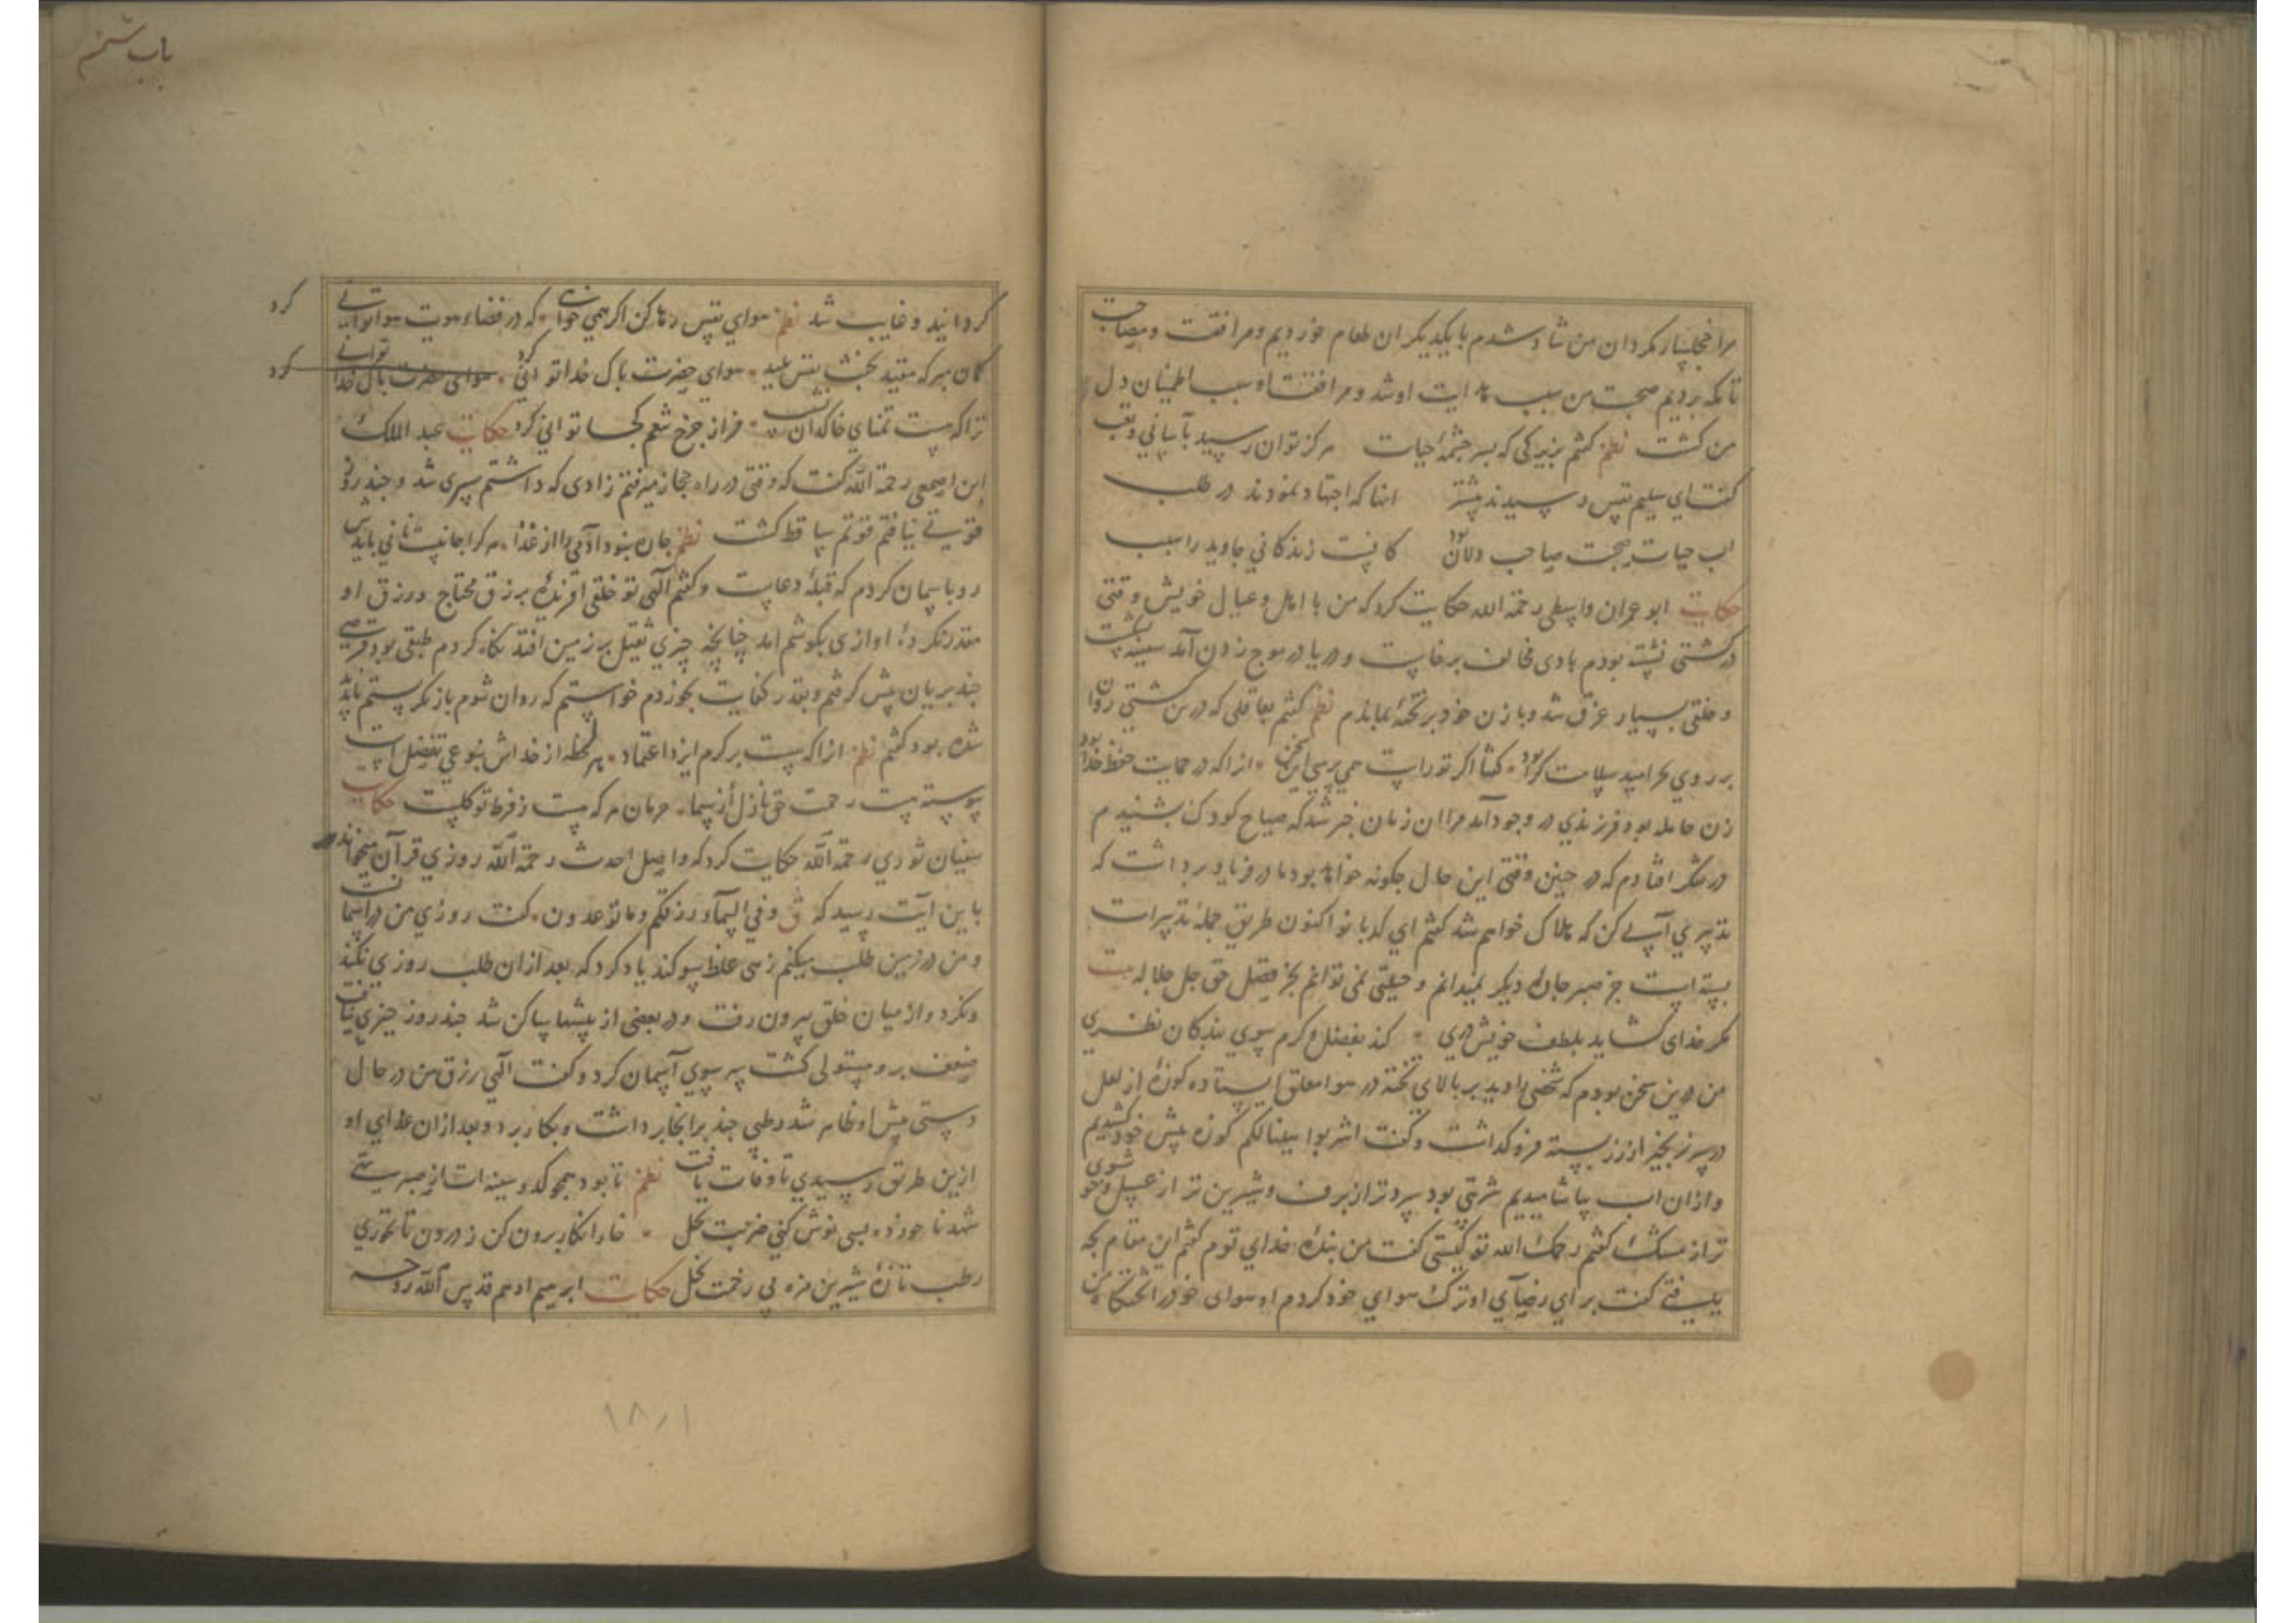 مرا خجلسار مکردان من شاد شدم با یکدیکر ان طعام خوردیم و مرافقت و مصاحبت
تا بمکه بردیم صحبت من سبب هدایت او شد و مرافقت او سبب اطمینان دل
من کشت نظم کفتم بزیرکی که بسر چشمهٔ حیات هرکز توان رسید بآسانی و تعب
کفت ای سلیم نفس رسیدند پیشتر انها که اجتهاد نمودند در طلب
اب حیات صحبت صاحب دلان بود کانست زندکانی جاوید را سبب
حکایت ابو عمران واسطی رحمة الله حکایت کرد که من با اهل و عیال خویش وقتی
در کشتی نشسته بودم بادی مخالف برخاست و دریا در موج زدن آمد سفینه بشکست
و خلقی بسیار غرق شد و با زن خود بر تختهٔ بماندم نظم کفتم بعاقلی که درین کشتی روان
بر روی بحر امید سلامت کرا بود کفتا اکر تو راست همی پرسی این سخن انرا که در حمایت حفظ خدا بود
زن حامله بود فرزندی در وجود آمد مرا ان زمان خبر شد که صیاح کودک بشنیدم
در فکر افتادم که در چنین وقتی این حال چکونه خواهد بود مادر فریاد برداشت که
تدبیری آبی کن که هلاک خواهم شد کفتم ای کدبانو اکنون طریق جملهٔ تدبیرات
بسته است جز صبر چارهٔ دیکر نمیدانم و حیلتی نمی توانم بجز فضل حق جل جلاله بیت
مکر خدای کشاید بلطف خویش دری کند بفضل و کرم سوی بندکان نظری
من درین سخن بودم که شخصی را دیدم بر بالای تخته در هوا معلق ایستاده کوزهٔ از لعل
در سر زنجیر از زر بسته فرو کذاشت و کفت اشربوا هنیئا لکم کوزه پیش خود کشیدیم
و ازان اب بیاشامیدیم شربتی بود سردتر از برف و شیرین تر از عسل و خوشبوی
تر از مشک کفتم رحمک الله تو کیستی کفت من بندهٔ خدای توم کفتم این مقام بچه
یافتی کفت برای رضای او ترک هوای خود کردم او هوای خود را تختکاه من
باب ششم
کردانید و غایب شد نظم هوای نفس رها کن اکر همی خواهی که در فضاء هویت هوا توانی کرد
کمان مبر که مقید بحبس نفس پلید هوای حضرت پاک خدا توانی کرد
ترا که هست تمنای خاکدان فراز چرخ نعم کجا توانی کرد حکایت عبد الملک
ابن اصمعی رحمة الله کفت که وقتی در راه حجاز میرفتم زادی که داشتم سپری شد و چند روز
قوتی نیافتم قوتم ساقط کشت نظم چاره نبود آدمی را از غذا هر کرا جانیست نانی بایدش
رو باسمان کردم که قبلهٔ دعاست و کفتم الهی تو خلقی افریدهٔ برزق محتاج و رزق او
مقدر کردهٔ اوازی بکوشم امد چنانچه چیزی ثقیل بر زمین افتد نکاه کردم طبقی بود قرصی
چند بریان پیش کرفتم و بقدر کفایت بخوردم خواستم که روان شوم باز نکرستم ناپدید
شده بود کفتم نظم انرا که هست بر کرم ایزد اعتماد هر لحظه از خداش بنوعی تفضل است
پیوسته هست رحمت حق نازل از سما حرمان هر که هست ز فرط توکلست حکایت
سفیان ثوری رحمة الله حکایت کرد که واصل احدب رحمة الله روزی قرآن میخواند
باین آیت رسید که و فی السماء رزقکم و ما توعدون کفت روزی من در آسمانست
و من در زمین طلب میکنم زهی غلط سوکند یاد کرد که بعد ازان طلب روزی نکند
و نکرد و از میان خلق بیرون رفت و در بعضی از بیشها ساکن شد چند روز چیزی نیافت
ضعف برو مستولی کشت سر سوی آسمان کرد و کفت الهی رزق من در حال
دستی پیش او ظاهر شد رطبی چند برانجا برداشت و بکار برد و بعد ازان غذای او
ازین طریق رسیدی تا وفات یافت نظم تا بود همچو کدو سینه ات از صبر تهی
شهد ناخورده بسی نوش کنی ضربت نحل خار انکار برون کن ز درون تا بخوری
رطب تازهٔ شیرین مزه بی زحمت نحل حکایت ابرهیم ادهم قدس الله روحه